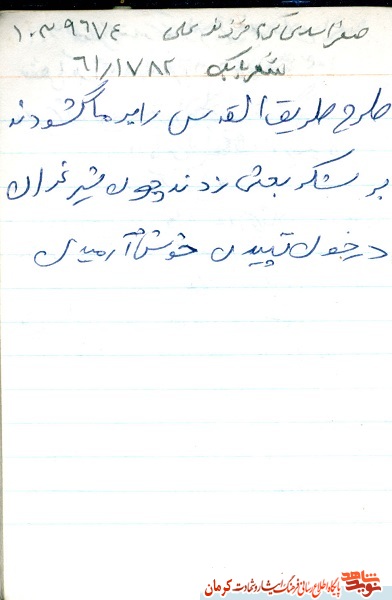 صفر اسدی کرم فرزند علی ۱۰۳۹۶۷۴
شهر بابک ۶۱/۱۷۸۲
طرح طریق القدس را بر ما گشودند
بر لشکر بعثی زدند چون شیر غران
در خون تپیدی خوش آرمیدی
پایگاه اطلاع رسانی فرهنگ ایثار و شهادت کرمان
نوید شاهد